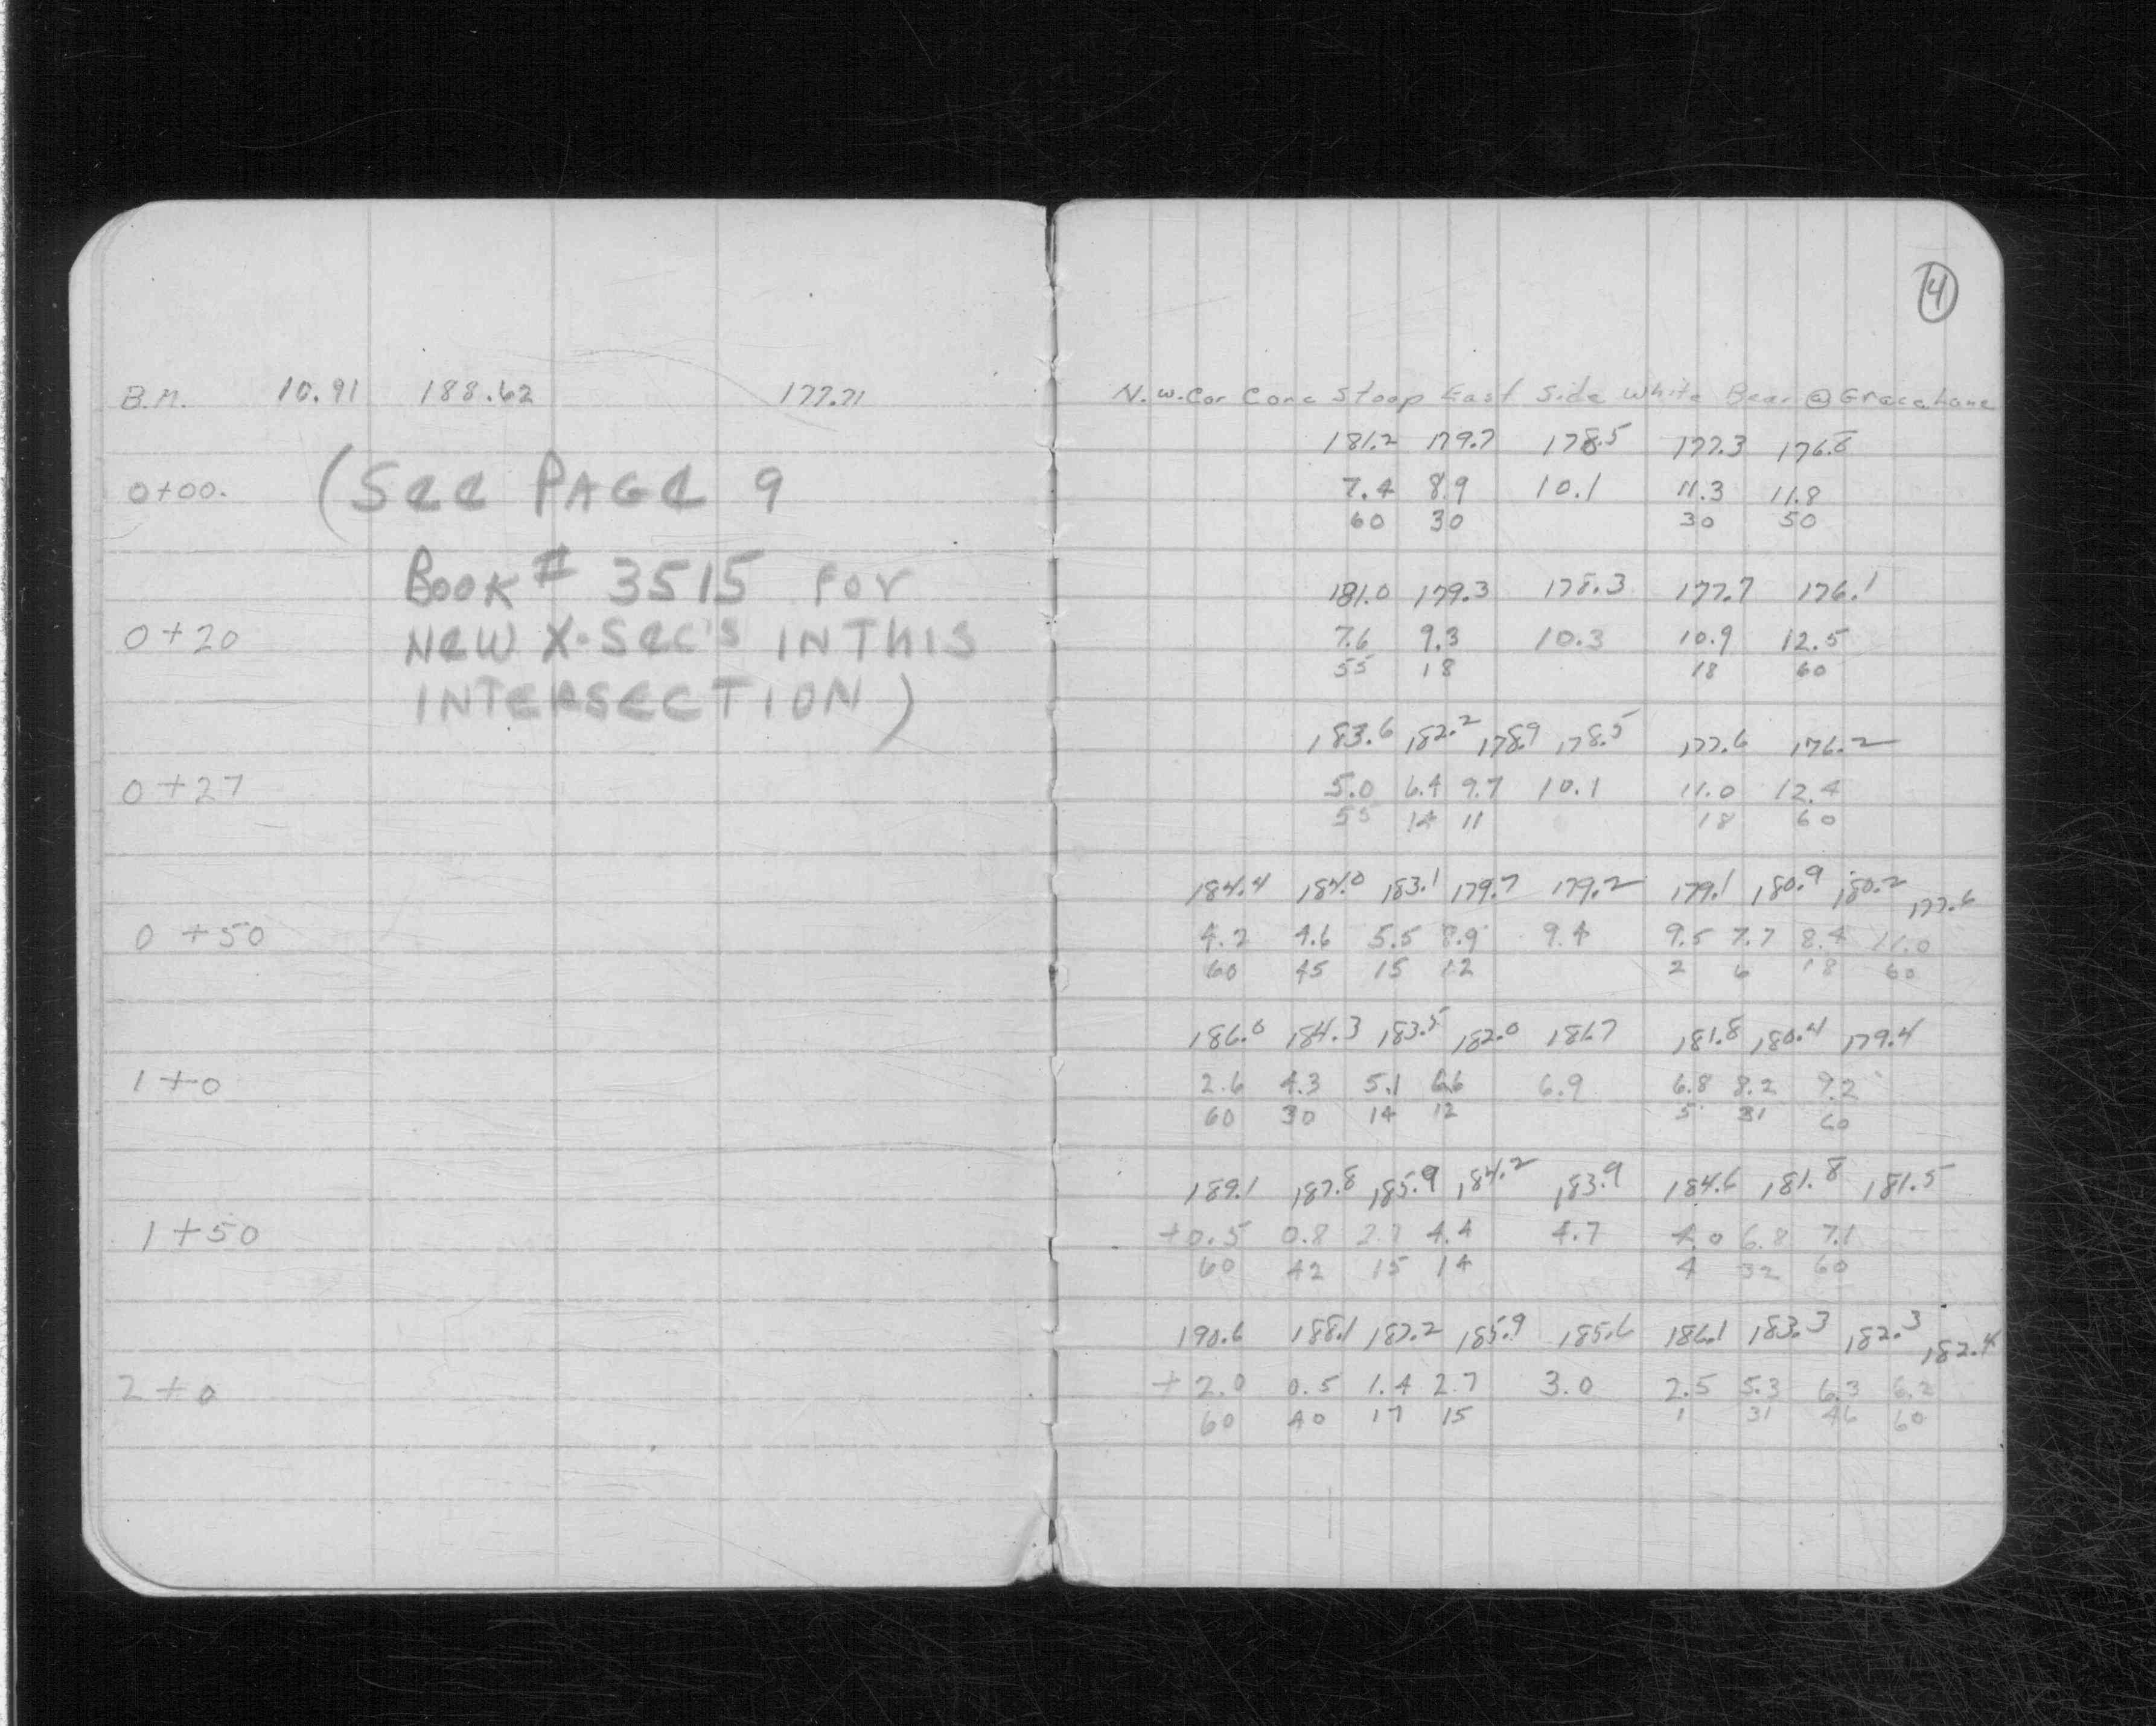 4
B.M. 10.91 188.62 177.71 N.W. Cor Conc Stoop East Side White Bear @ Grace Lane
181.2 179.7 178.5 177.3 176.8
0+00. (See PAGE 9 7.4 8.9 10.1 11.3 11.8
60 30 30 50
Book # 3515 For 181.0 179.3 178.3 177.7 176.1
0+20 New X-Sec's IN THIS 7.6 9.3 10.3 10.9 12.5
55 18 18 60
INTERSECTION)
183.6 182.2 178.9 178.5 177.6 176.2
0+27 5.0 6.4 9.7 10.1 11.0 12.4
55 14 11 18 60
184.4 184.0 183.1 179.7 179.2 179.1 180.9 180.2 177.6
0+50 4.2 4.6 5.5 8.9 9.4 9.5 7.7 8.4 11.0
60 45 15 12 2 6 18 60
186.0 184.3 183.5 182.0 181.7 181.8 180.4 179.4
1+0 2.6 4.3 5.1 6.6 6.9 6.8 8.2 9.2
60 30 14 12 5 31 60
189.1 187.8 185.9 184.2 183.9 184.6 181.8 181.5
1+50 +0.5 0.8 2.7 4.4 4.7 4.0 6.8 7.1
60 42 15 14 4 32 60
190.6 188.1 187.2 185.9 185.6 186.1 183.3 182.3 182.4
2+0 +2.0 0.5 1.4 2.7 3.0 2.5 5.3 6.3 6.2
60 40 17 15 1 31 46 60